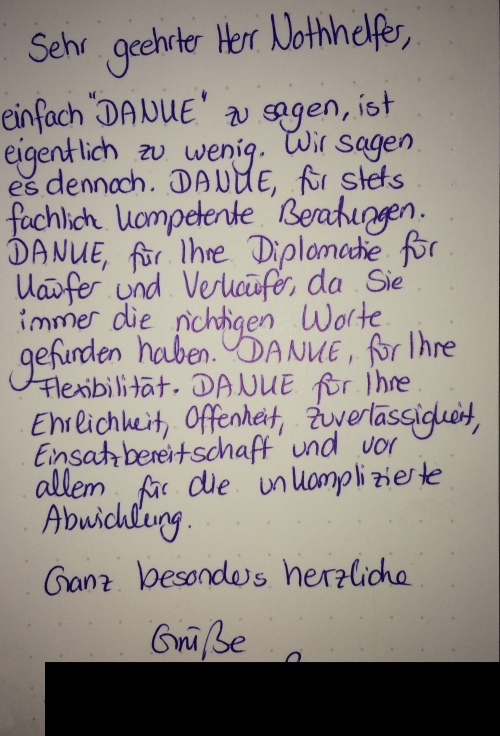 Sehr geehrter Herr Nothhelfer,
einfach "DANKE" zu sagen, ist
eigentlich zu wenig. Wir sagen
es dennoch. DANKE, für stets
fachlich kompetente Beratungen.
DANKE, für Ihre Diplomatie für
Käufer und Verkäufer, da Sie
immer die richtigen Worte
gefunden haben. DANKE, für Ihre
Flexibilität. DANKE für Ihre
Ehrlichkeit, Offenheit, Zuverlässigkeit,
Einsatzbereitschaft und vor
allem für die unkomplizierte
Abwicklung.
Ganz besonders herzliche
Grüße